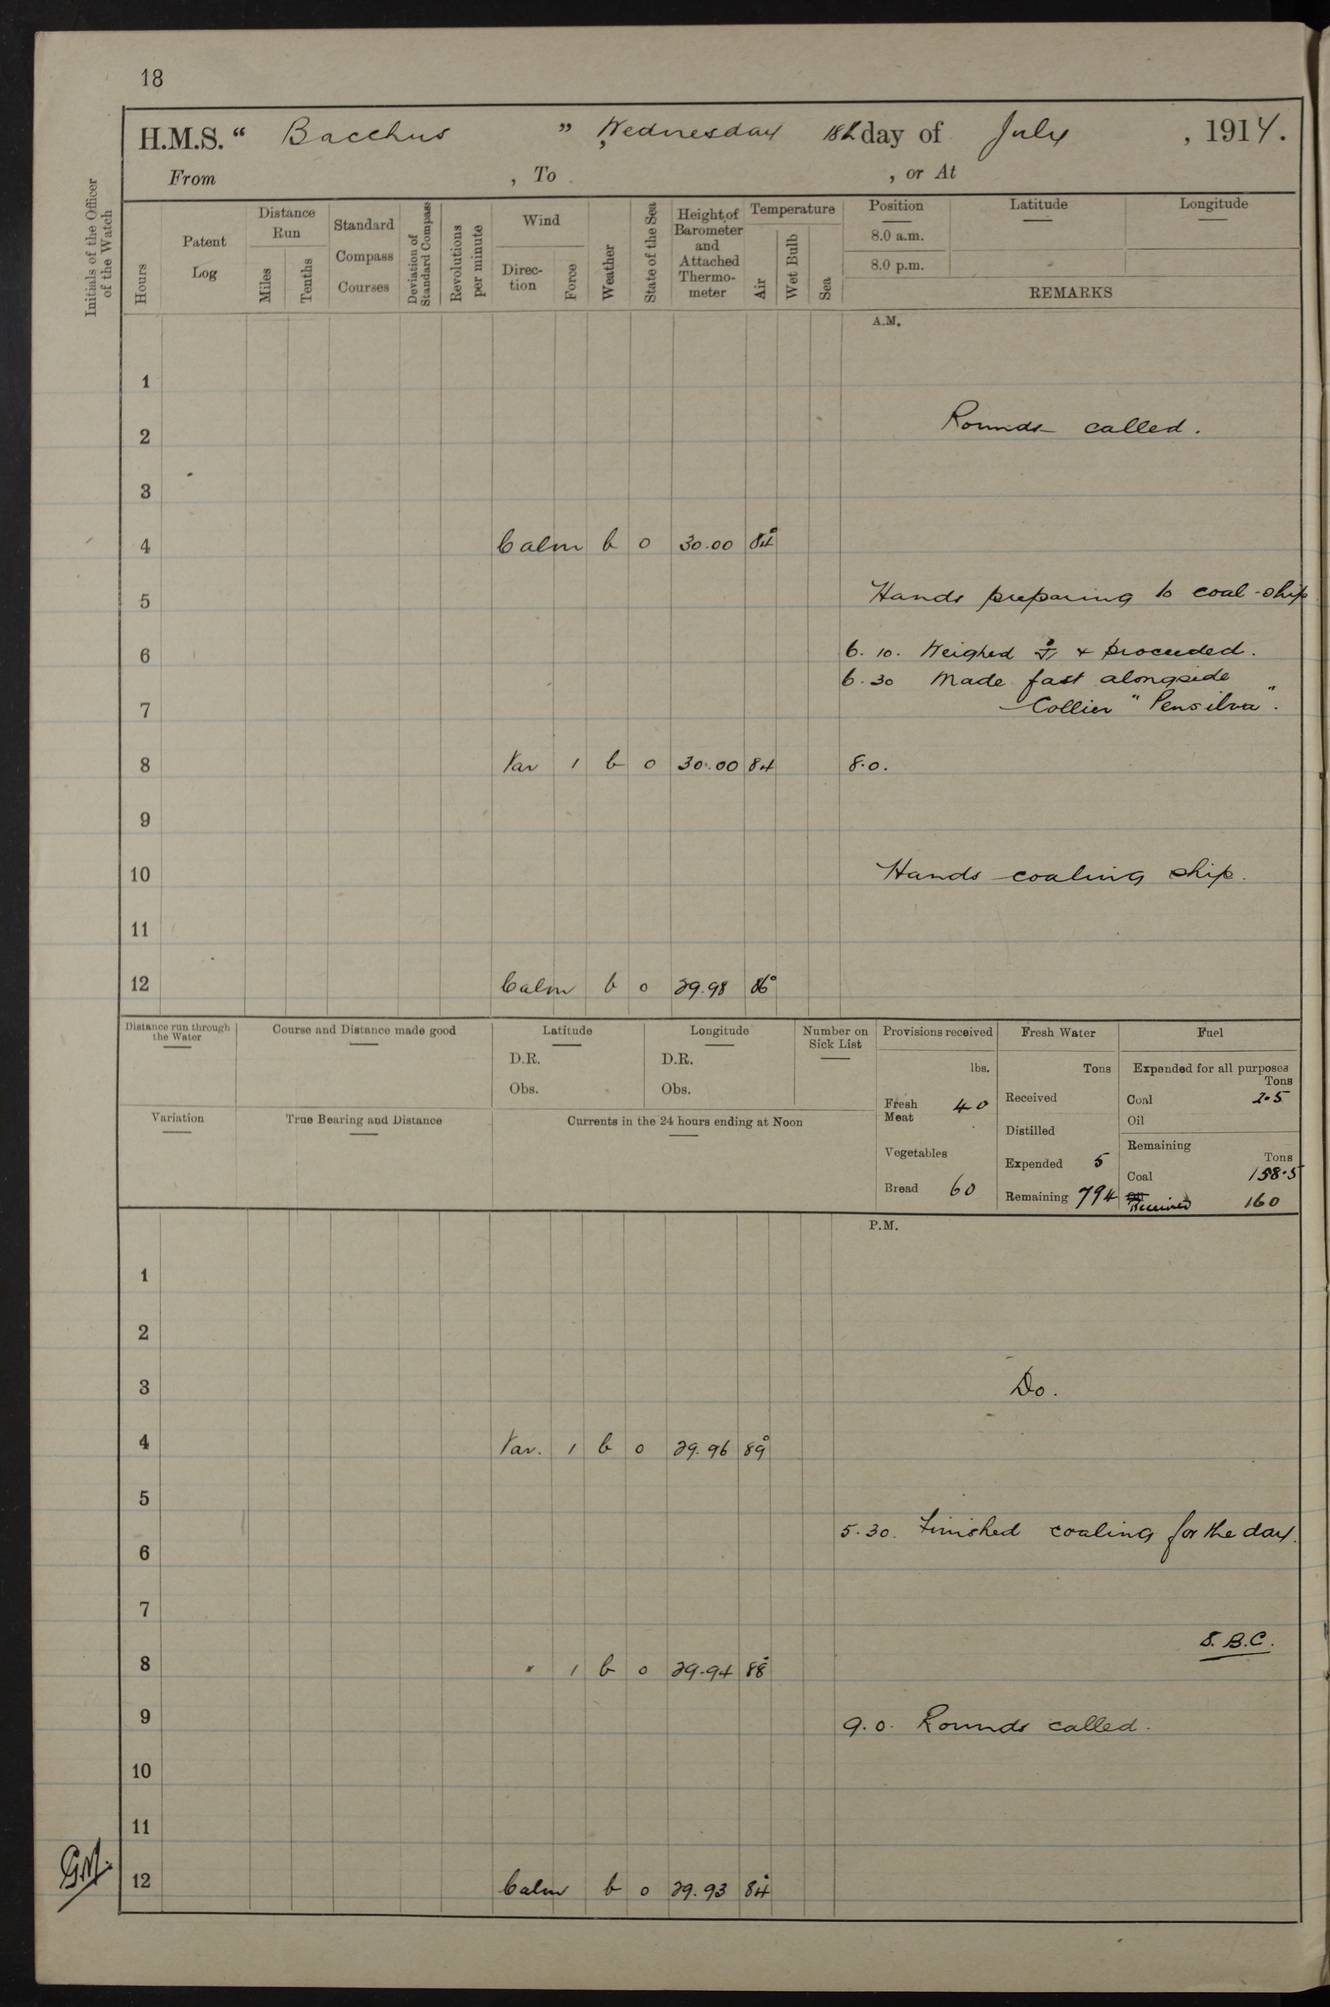 18
H.M.S. “ Bacchus ” , Wednesday day of July , 1914.
From , To , or At
Initials of the Officer of the Watch
Hours
Patent Log
Distance Run
Miles
Tenths
Standard Compass Courses
Deviation of Standard Compass
Revolutions per minute
Wind
Direction
Force
Weather
State of the Sea
Height of Barometer and Attached Thermometer
Temperature
Air
Wet Bulb
Sea
Position Latitude Longitude
8.0 a.m.
8.0 p.m.
REMARKS
A.M.
1
2 Rounds called.
3
4 Calm b 0 30.00 84°
5 Hands preparing to coal ship
6 6. 10. Weighed & proceeded.
6. 30 Made fast alongside
7 Collier "Pensilva".
8 Var 1 b 0 30.00 84 8.0.
9
10 Hands coaling ship.
11
12 Calm b 0 29.98 86°
Distance run through the Water
Course and Distance made good
Latitude
D.R.
Obs.
Longitude
D.R.
Obs.
Number on Sick List
Variation
True Bearing and Distance
Currents in the 24 hours ending at Noon
Provisions received
lbs.
Fresh Meat 40
Vegetables
Bread 60
Fresh Water
Tons
Received
Distilled
Expended 5
Remaining 794
Fuel
Expended for all purposes
Tons
Coal 2.5
Oil
Remaining
Tons
Coal 158.5
Received 160
P.M.
1
2
3 Do.
4 Var. 1 b 0 29.96 89°
5
5.30. Finished coaling for the day.
6
7
S.B.C.
8 " 1 b 0 29.94 88°
9 9.0. Rounds called.
10
11
G.M.
12 Calm b 0 29.93 84°